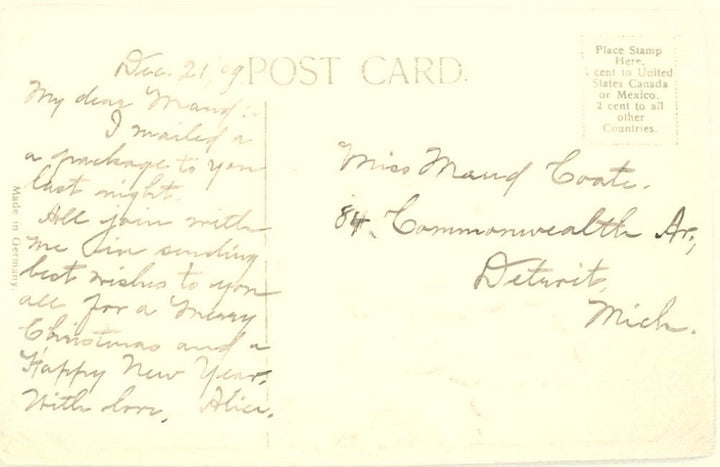 Dec. 21, '09
POST CARD.
My dear Maud:-
I mailed a
a package to you
last night.
All join with
me in sending
best wishes to you
all for a Merry
Christmas and a
Happy New Year.
With love, Alice.
Made in Germany.
Place Stamp
Here.
1 cent to United
States Canada
or Mexico.
2 cent to all
other
Countries.
Miss Maud Coate.
84, Commonwealth Av.,
Detroit,
Mich.